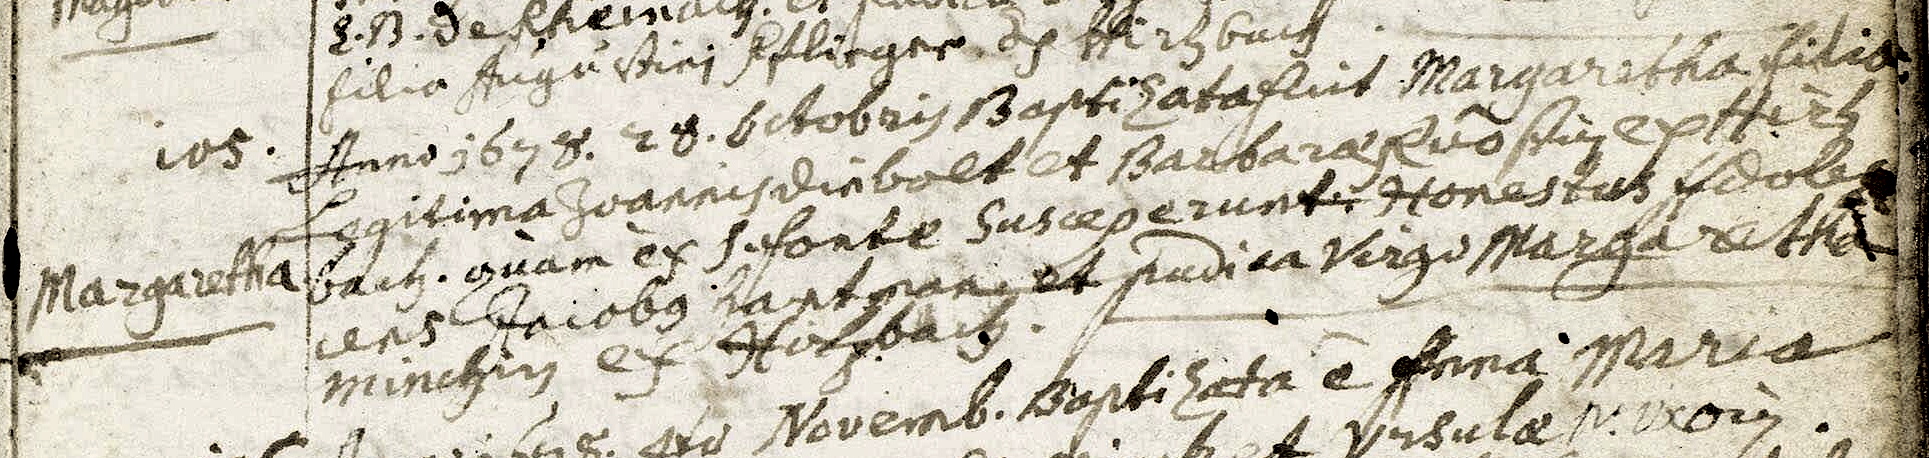 S. B. de Rheinach. et pudica
filia Augustini Pflieger ex Hirtzbach
105. Anno 1678. 28. Octobris Baptizata fuit Margaretha filia
Legitima Joannis diebolt et Barbaræ ex Hirtz
Margaretha bach. quam ex S. fonte Susceperunt. Honestus Adoles
cens Jacobg hartman et pudica Virgo Margaretha
minchin ex Hirtzbach.
Novemb. Baptizata ē Anna Maria
et Ursulæ N. uxoris.